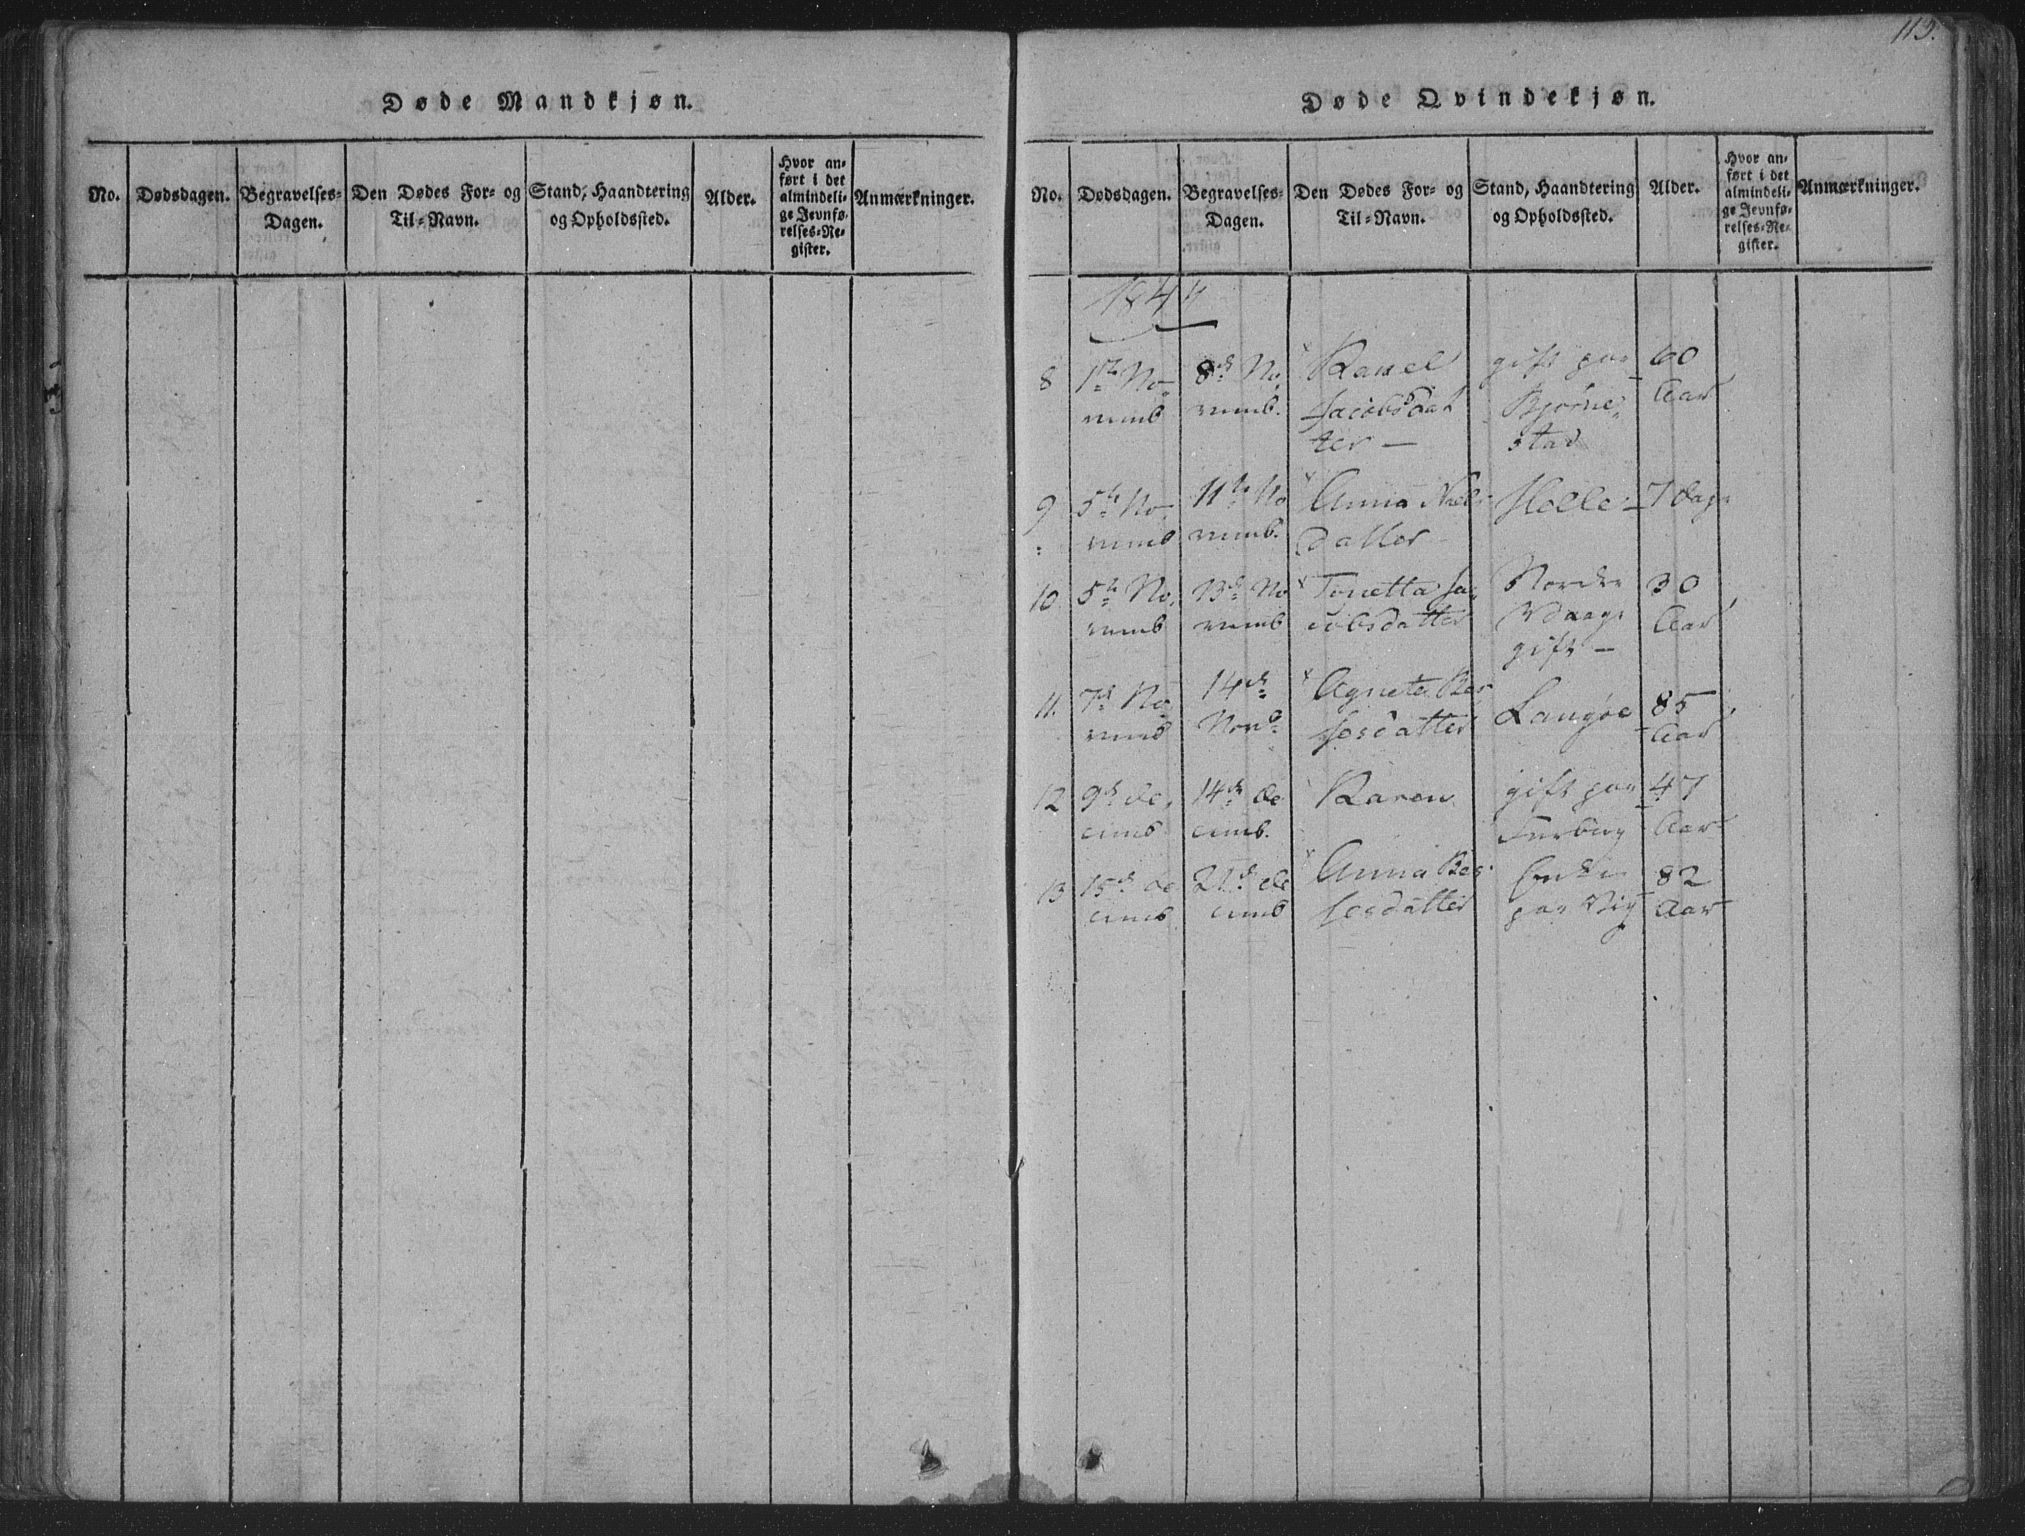 113.
Døde Mandkjøn.
No.
Dødsdagen.
Begravelses-
Dagen.
Den Dødes For- og
Til-Navn.
Stand, Haandtering
og Opholdssted.
Alder.
Hvor an-
ført i det
almindeli-
ge Jevnfø-
relses-Re-
gister.
Anmærkninger.
Døde Qvindekjøn.
No.
Dødsdagen.
Begravelses-
Dagen.
Den Dødes For- og
Til-Navn.
Stand, Haandtering
og Opholdssted.
Alder.
Hvor an-
ført i det
almindeli-
ge Jevnfø-
relses-Re-
gister.
Anmærkninger.
1844
8
1ste No-
vemb
8de No-
vemb.
Jacobsdat
ter —
gift paa
Bjørne-
stad
60
Aar
9
5te No-
vemb
11te No
vemb.
Anna Niels
datter
Holle
7 dage
10
5te No-
vemb
13de No
vemb
Tonetta Ja-
cobsdatter
Nordre
gift —
30
Aar
11.
7de No-
vemb
14de
Novb
Agnete
datter
Langøe
85
Aar
12
9de de-
cemb
14de de
cemb.
Karen
gift paa
47
Aar
13
15de de
cemb
21de de
cemb
Anna
datter
Enke
paa Vig
82
Aar